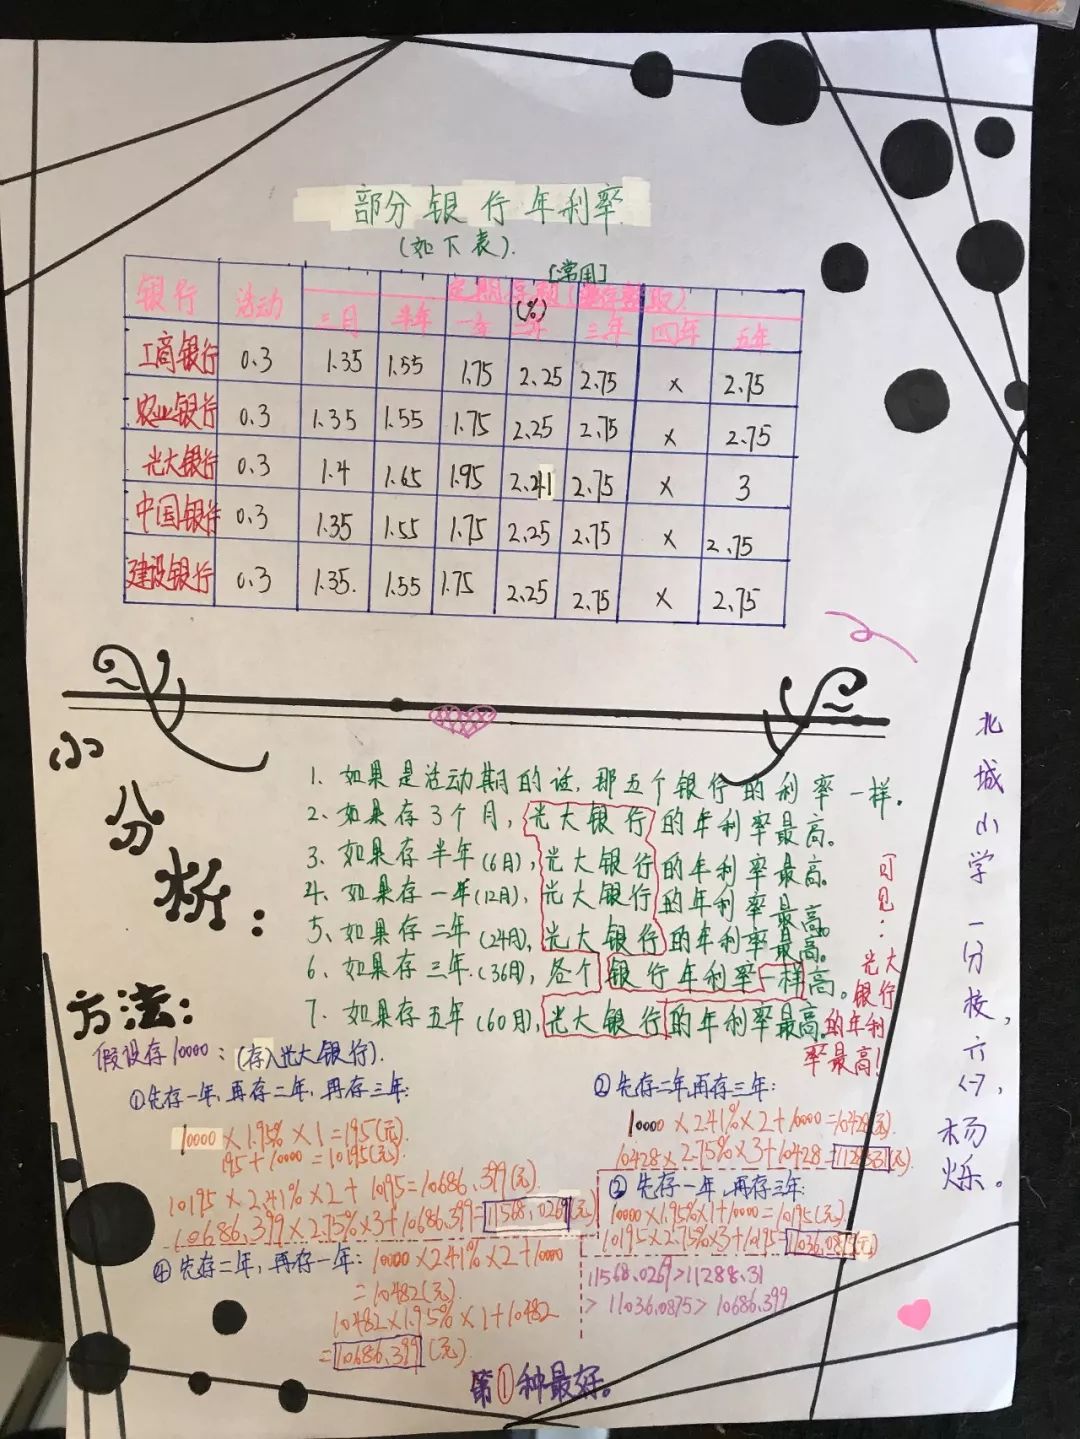 部分银行年利率
(如下表).
[常用]
银行 活动 定期 (%)
三月 半年 一年 二年 三年 四年 五年
工商银行 0.3 1.35 1.55 1.75 2.25 2.75 × 2.75
农业银行 0.3 1.35 1.55 1.75 2.25 2.75 × 2.75
光大银行 0.3 1.4 1.65 1.95 2.41 2.75 × 3
中国银行 0.3 1.35 1.55 1.75 2.25 2.75 × 2.75
建设银行 0.3 1.35. 1.55 1.75 2.25 2.75 × 2.75
小分析:
1、如果是活动期的话,那五个银行的利率一样。
2、如果存3个月,光大银行的年利率最高。
3、如果存半年(6月),光大银行的年利率最高。
4、如果存一年(12月),光大银行的年利率最高。
5、如果存二年(24月),光大银行的年利率最高。
6、如果存三年.(36月),各个银行年利率一样高。
7、如果存五年(60月),光大银行的年利率最高。
可见:光大银行的年利率最高!
方法:
假设存10000:(存入光大银行).
①先存一年,再存二年,再存三年:
10000×1.95%×1=195(元).
195+10000=10195(元).
10195×2.41%×2+10195=10686.399(元).
10686.399×2.75%×3+10686.399=11568.0269(元)
②先存二年,再存三年:
10000×2.41%×2+10000=10428(元).
10428×2.75%×3+10428=11288.31(元).
③先存一年,再存三年:
10000×1.95%×1+10000=10195(元).
10195×2.75%×3+10195=11036.0875(元)
④先存二年,再存一年:10000×2.41%×2+10000
=10482(元).
10482×1.95%×1+10482
=10686.399(元).
11568.0269>11288.31
>11036.0875>10686.399
第①种最好。
北城小学一分校,六<7>,杨烁。